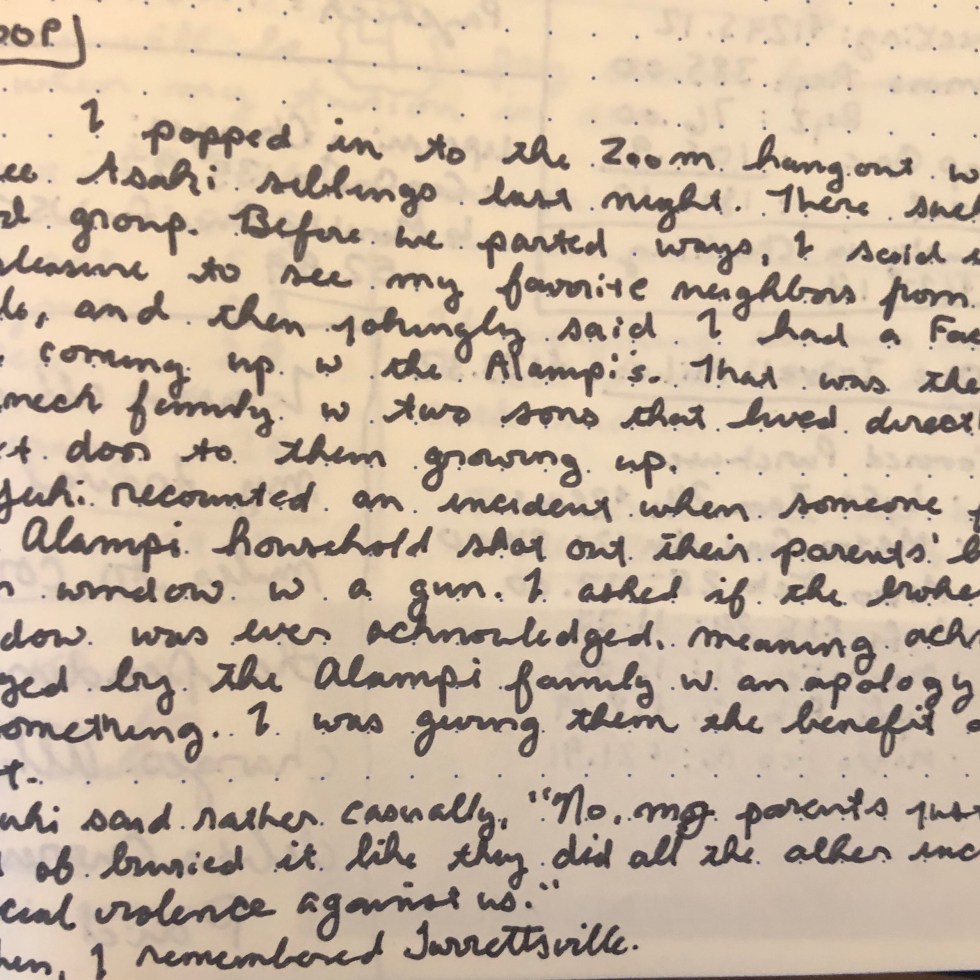 OOP
I popped in to the Zoom hangout w
ee Asahi siblings last night. There
group. Before we parted ways, I said
pleasure to see my favorite neighbors from
, and then jokingly said I had a Fac
coming up w the Alampi's. That was the
neck family w two sons that lived direct
t door to them growing up.
Yuki recounted an incident when someone
Alampi household shot out their parents' b
window w a gun. I asked if the broke
dow was ever acknowledged, meaning ack
ged by the Alampi family w an apology
omething. I was giving them the benefit o
t.
uki said rather casually, "No, my parents just
of buried it like they did all the other inc
cial violence against us."
hen, I remembered Jarrettsville.